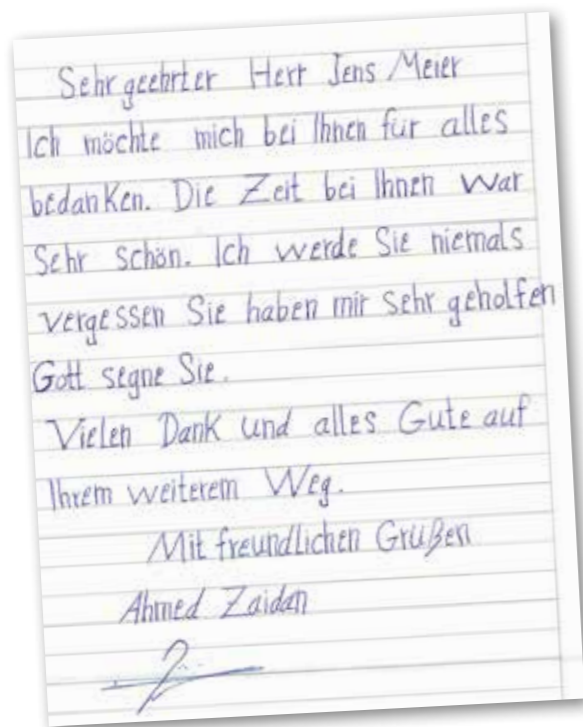 Sehr geehrter Herr Jens Meier
Ich möchte mich bei Ihnen für alles
bedanken. Die Zeit bei Ihnen war
Sehr schön. Ich werde Sie niemals
vergessen Sie haben mir sehr geholfen
Gott segne Sie.
Vielen Dank und alles Gute auf
Ihrem weiterem Weg.
Mit freundlichen Grüßen
Ahmed Zaidan